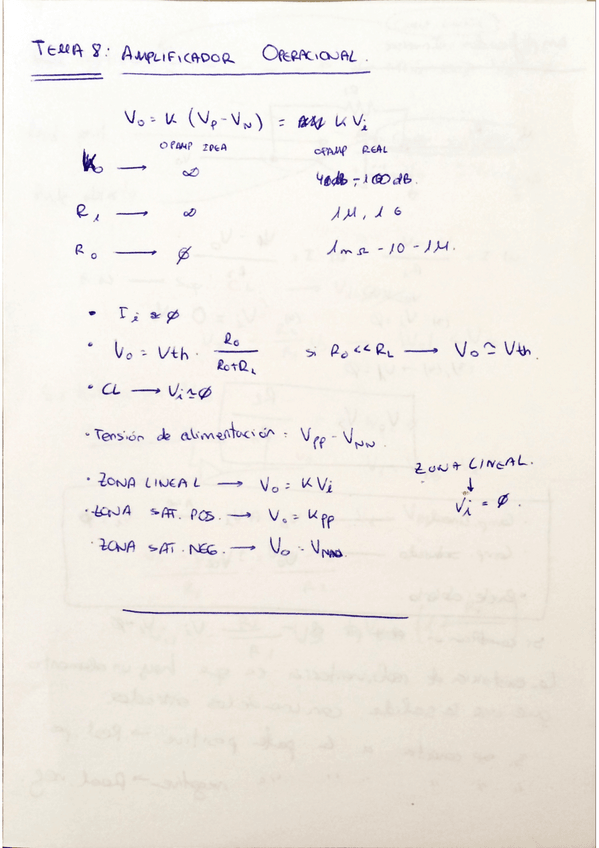 TEMA 8: AMPLIFICADOR OPERACIONAL.
Vo = K (Vp - VN) = K Vi
OPAMP IDEA OPAMP REAL
Ko → ∞ 40dB - 100dB.
Ri → ∞ 1M, 1G
Ro → ∅ 1mΩ - 10 - 1M.
• Ii ≈ ∅
• Vo = Vth · Ro / Ro+RL si Ro << RL → Vo ≃ Vth.
• CL → Vi ≃ ∅
· Tensión de alimentación: Vpp - VNN.
ZONA LINEAL.
↓
Vi = ∅.
· ZONA LINEAL → Vo = K Vi
· ZONA SAT. POS. → Vo = Kpp
· ZONA SAT. NEG. → Vo =